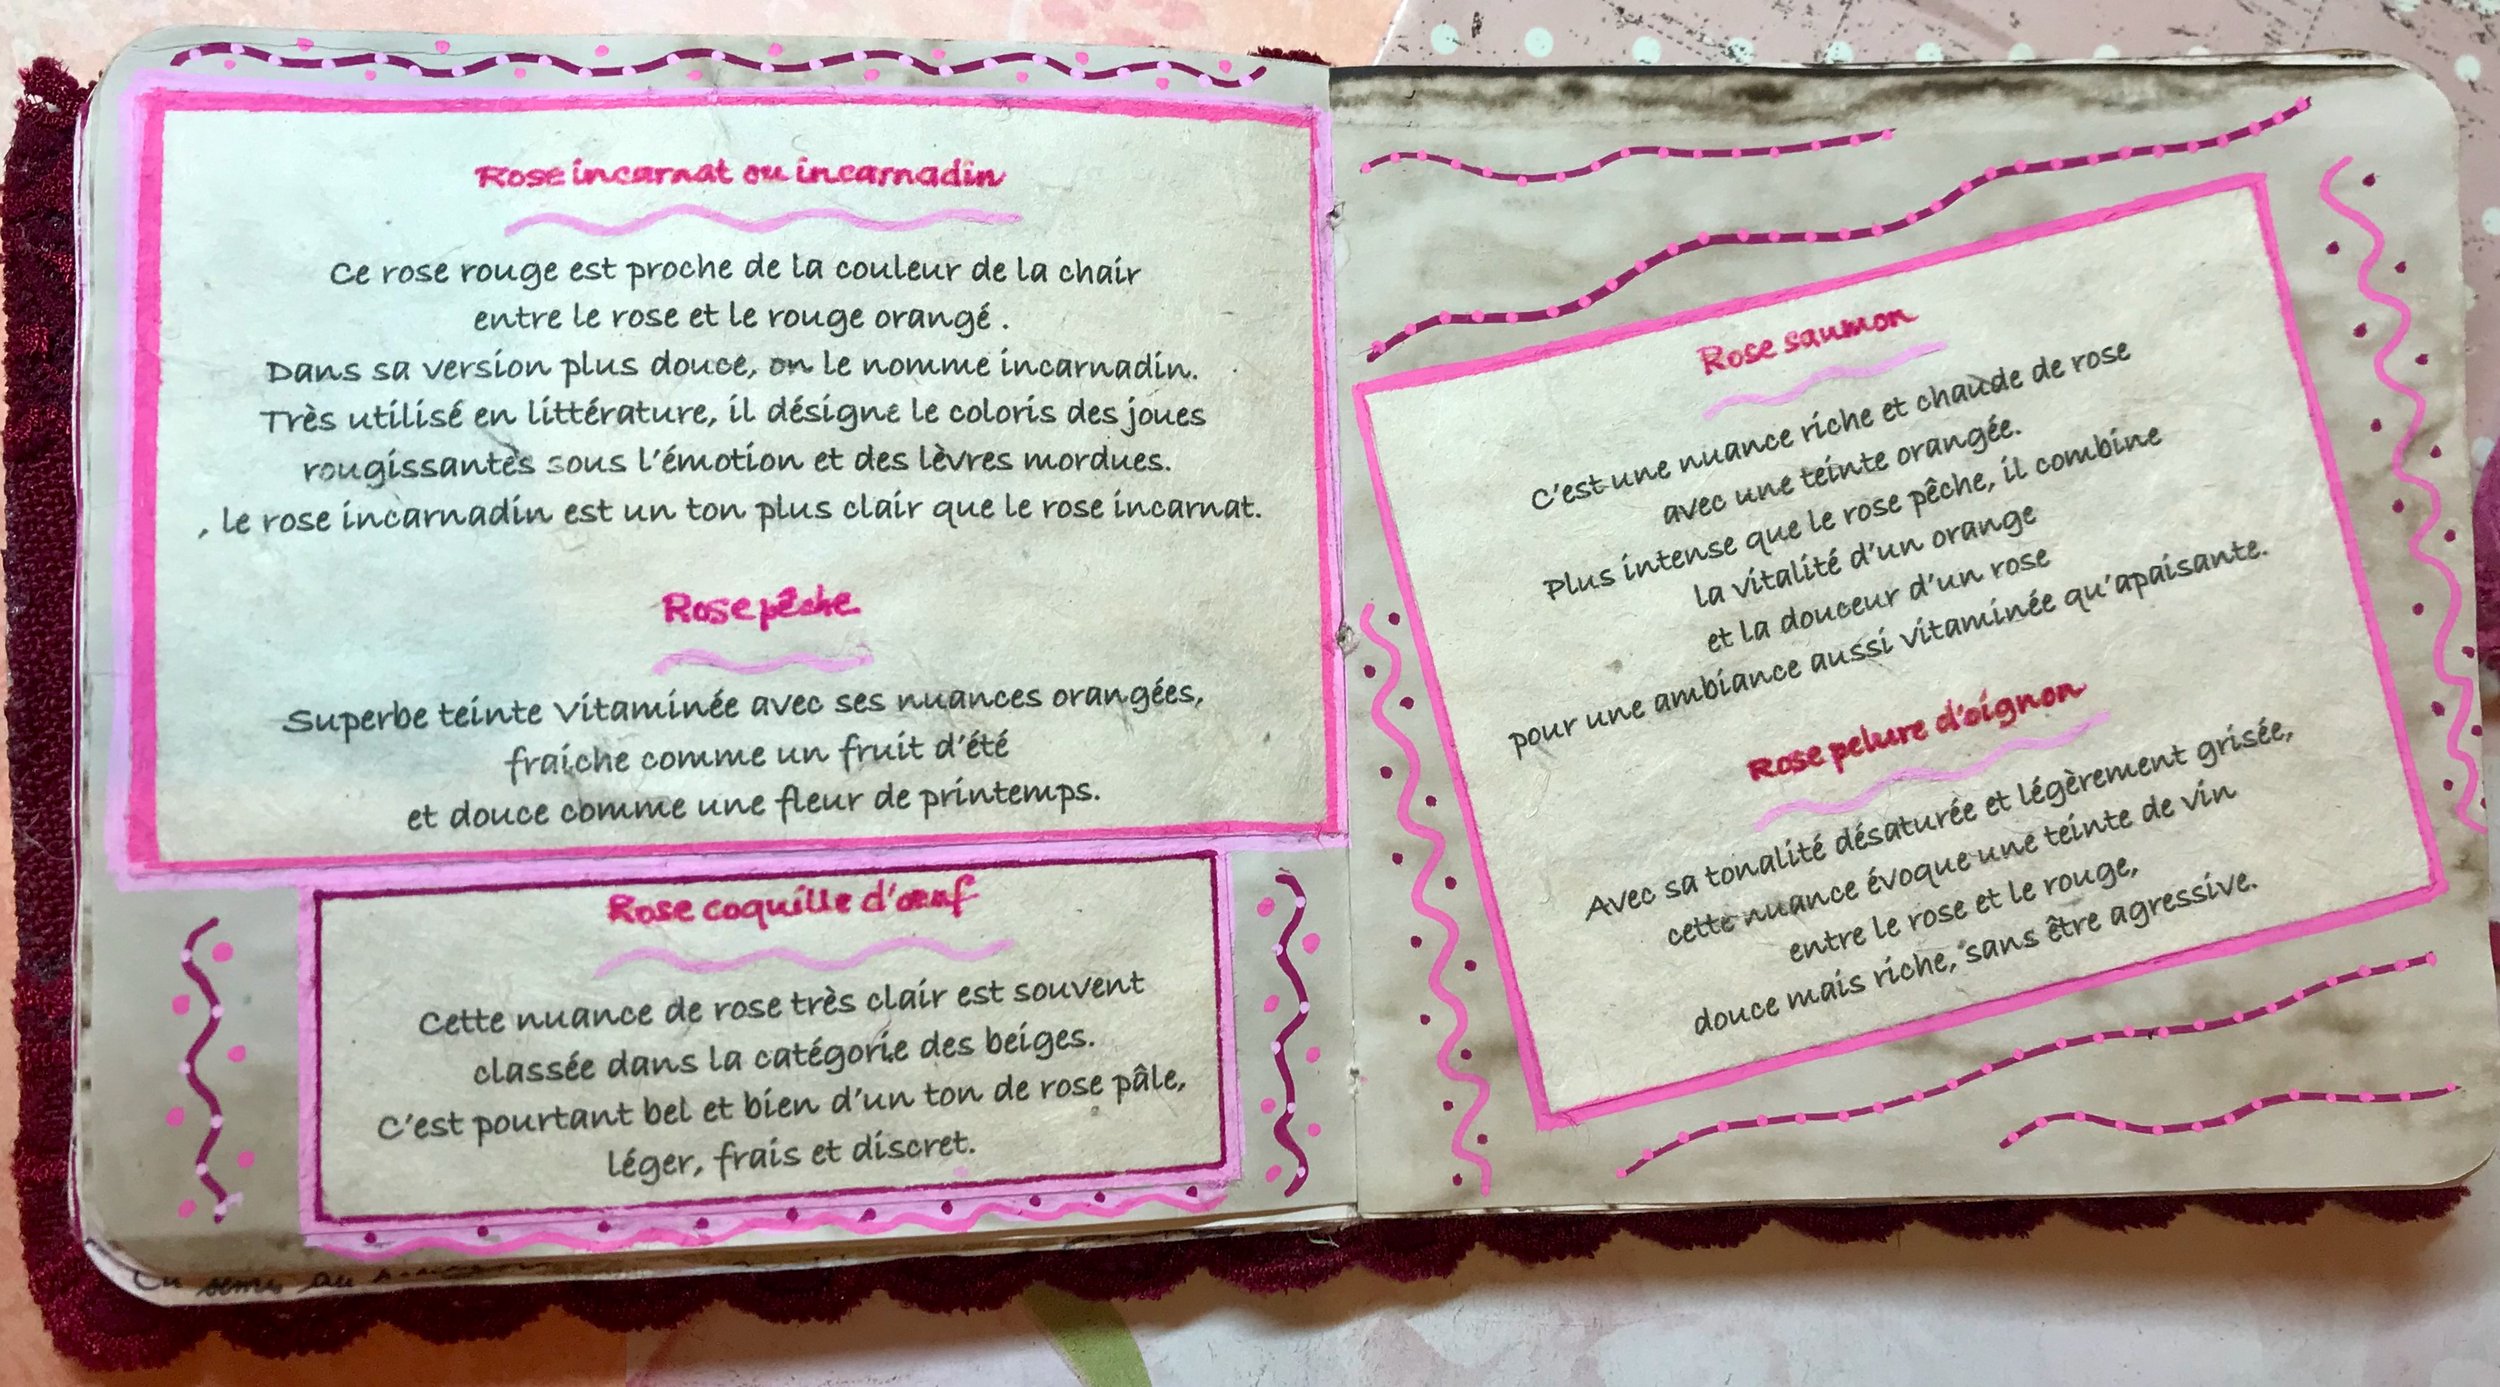 Rose incarnat ou incarnadin
Ce rose rouge est proche de la couleur de la chair
entre le rose et le rouge orangé .
Dans sa version plus douce, on le nomme incarnadin.
Très utilisé en littérature, il désigne le coloris des joues
rougissantes sous l'émotion et des lèvres mordues.
, le rose incarnadin est un ton plus clair que le rose incarnat.
Rose pêche
Superbe teinte vitaminée avec ses nuances orangées,
fraiche comme un fruit d'été
et douce comme une fleur de printemps.
Rose coquille d'œuf
Cette nuance de rose très clair est souvent
classée dans la catégorie des beiges.
C'est pourtant bel et bien d'un ton de rose pâle,
léger, frais et discret.
Rose saumon
C'est une nuance riche et chaude de rose
avec une teinte orangée.
Plus intense que le rose pêche, il combine
la vitalité d'un orange
et la douceur d'un rose
pour une ambiance aussi vitaminée qu'apaisante.
Rose pelure d'oignon
Avec sa tonalité désaturée et légèrement grisée,
cette nuance évoque une teinte de vin
entre le rose et le rouge,
douce mais riche, sans être agressive.